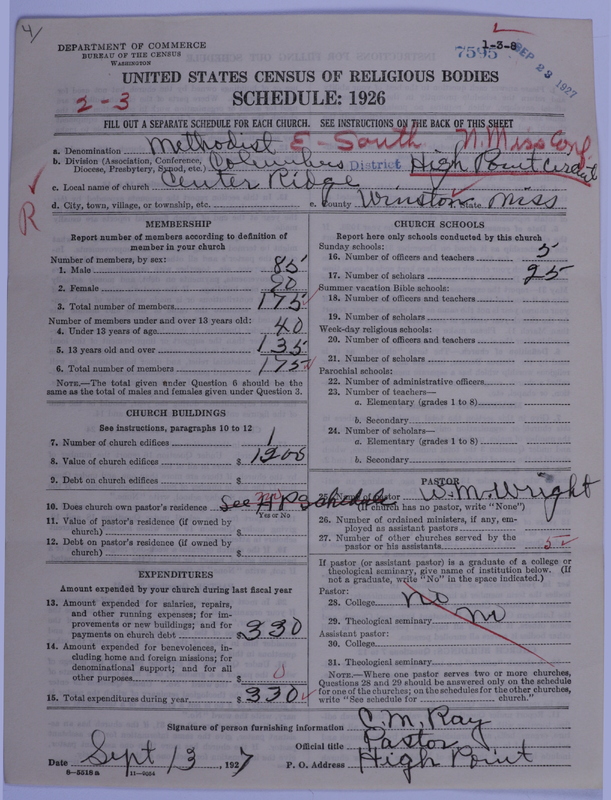 4/
DEPARTMENT OF COMMERCE
BUREAU OF THE CENSUS
WASHINGTON
1-3-8
7595 SEP 23 1927
UNITED STATES CENSUS OF RELIGIOUS BODIES
2-3
SCHEDULE: 1926
FILL OUT A SEPARATE SCHEDULE FOR EACH CHURCH. SEE INSTRUCTIONS ON THE BACK OF THIS SHEET
a. Denomination Methodist E-South N. Miss Conf
b. Division (Association, Conference, Diocese, Presbytery, Synod, etc.) Columbus District High Point Circuit
c. Local name of church Center Ridge
d. City, town, village, or township, etc. e. County Winston State Miss
R
MEMBERSHIP
Report number of members according to definition of
member in your church
Number of members, by sex:
1. Male 85
2. Female 90
3. Total number of members 175
Number of members under and over 13 years old:
4. Under 13 years of age 40
5. 13 years old and over 135
6. Total number of members 175
NOTE.—The total given under Question 6 should be the
same as the total of males and females given under Question 3.
CHURCH BUILDINGS
See instructions, paragraphs 10 to 12
7. Number of church edifices 1
8. Value of church edifices $ 1200
9. Debt on church edifices $
10. Does church own pastor's residence no See H P Schedule
Yes or No
11. Value of pastor's residence (if owned by
church) $
12. Debt on pastor's residence (if owned by
church) $
EXPENDITURES
Amount expended by your church during last fiscal year
13. Amount expended for salaries, repairs,
and other running expenses; for im-
provements or new buildings; and for
payments on church debt $ 330
14. Amount expended for benevolences, in-
cluding home and foreign missions; for
denominational support; and for all
other purposes $ 0
15. Total expenditures during year $ 330
CHURCH SCHOOLS
Report here only schools conducted by this church
Sunday schools:
16. Number of officers and teachers 5
17. Number of scholars 25
Summer vacation Bible schools:
18. Number of officers and teachers
19. Number of scholars
Week-day religious schools:
20. Number of officers and teachers
21. Number of scholars
Parochial schools:
22. Number of administrative officers
23. Number of teachers—
a. Elementary (grades 1 to 8)
b. Secondary
24. Number of scholars—
a. Elementary (grades 1 to 8)
b. Secondary
PASTOR
25. Name of pastor W. M. Wright
(If church has no pastor, write "None")
26. Number of ordained ministers, if any, em-
ployed as assistant pastors
27. Number of other churches served by the
pastor or his assistants 5
If pastor (or assistant pastor) is a graduate of a college or
theological seminary, give name of institution below. (If
not a graduate, write "No" in the space indicated.)
Pastor:
28. College no
29. Theological seminary no
Assistant pastor:
30. College
31. Theological seminary
NOTE.—Where one pastor serves two or more churches,
Questions 28 and 29 should be answered only on the schedule
for one of the churches; on the schedules for the other churches,
write "See schedule for church."
Signature of person furnishing information C. M. Ray
Official title Pastor
Date Sept 13, 1927 P. O. Address High Point
8—5518 a 11—9054